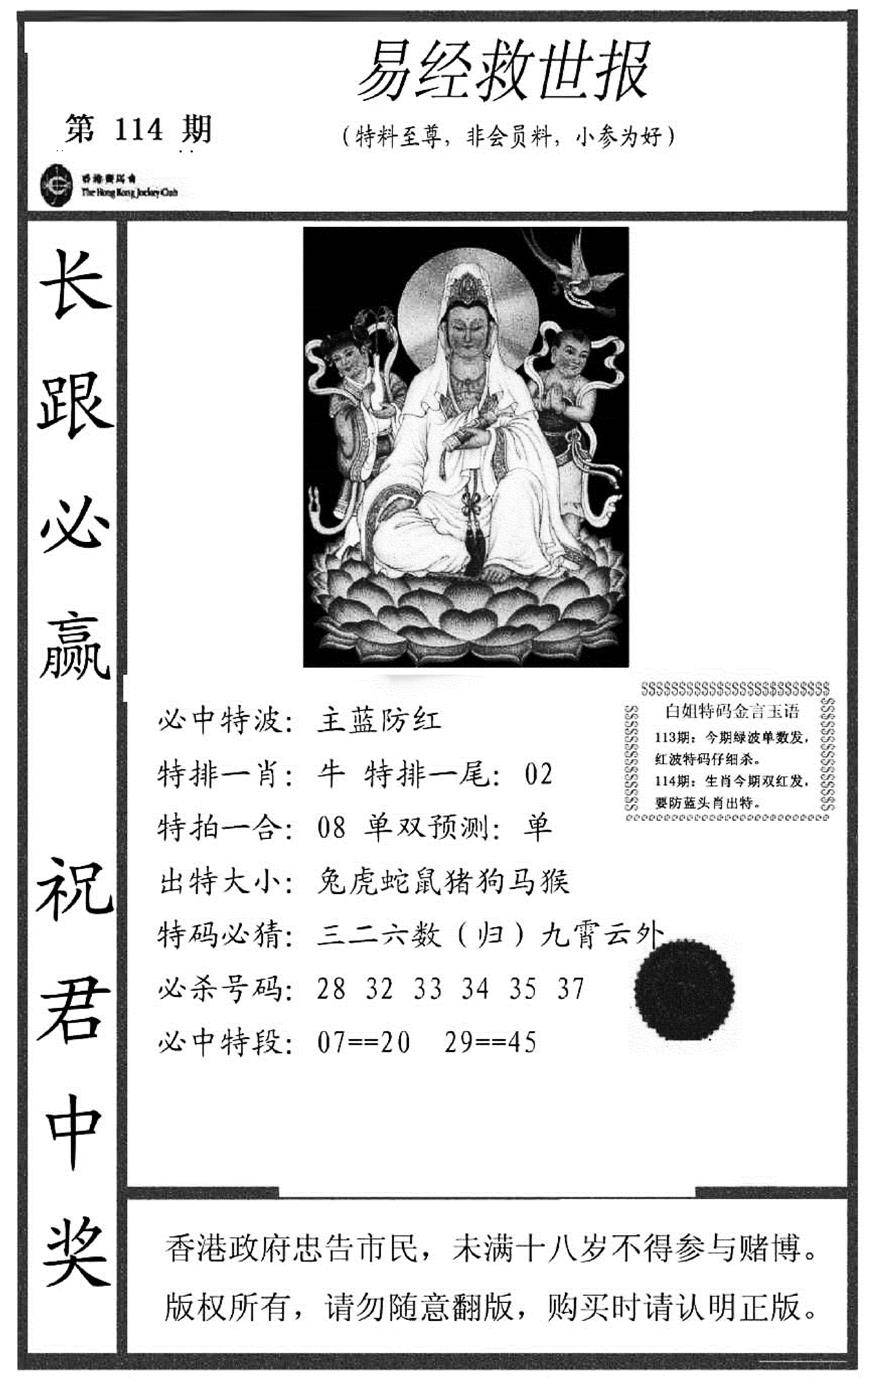 易经救世报
第 114 期
（特料至尊，非会员料，小参为好）
香港賽馬會
The Hong Kong Jockey Club
长跟必赢 祝君中奖
必中特波：主蓝防红
特排一肖：牛 特排一尾：02
特拍一合：08 单双预测：单
出特大小：兔虎蛇鼠猪狗马猴
特码必猜：三二六数（归）九霄云外
必杀号码：28 32 33 34 35 37
必中特段：07==20 29==45
$$$$$$$$$$$$$$$$$$$$$$$$$
白姐特码金言玉语
113期：今期绿波单数发，
红波特码仔细杀。
114期：生肖今期双红发，
要防蓝头肖出特。
香港政府忠告市民，未满十八岁不得参与赌博。
版权所有，请勿随意翻版，购买时请认明正版。